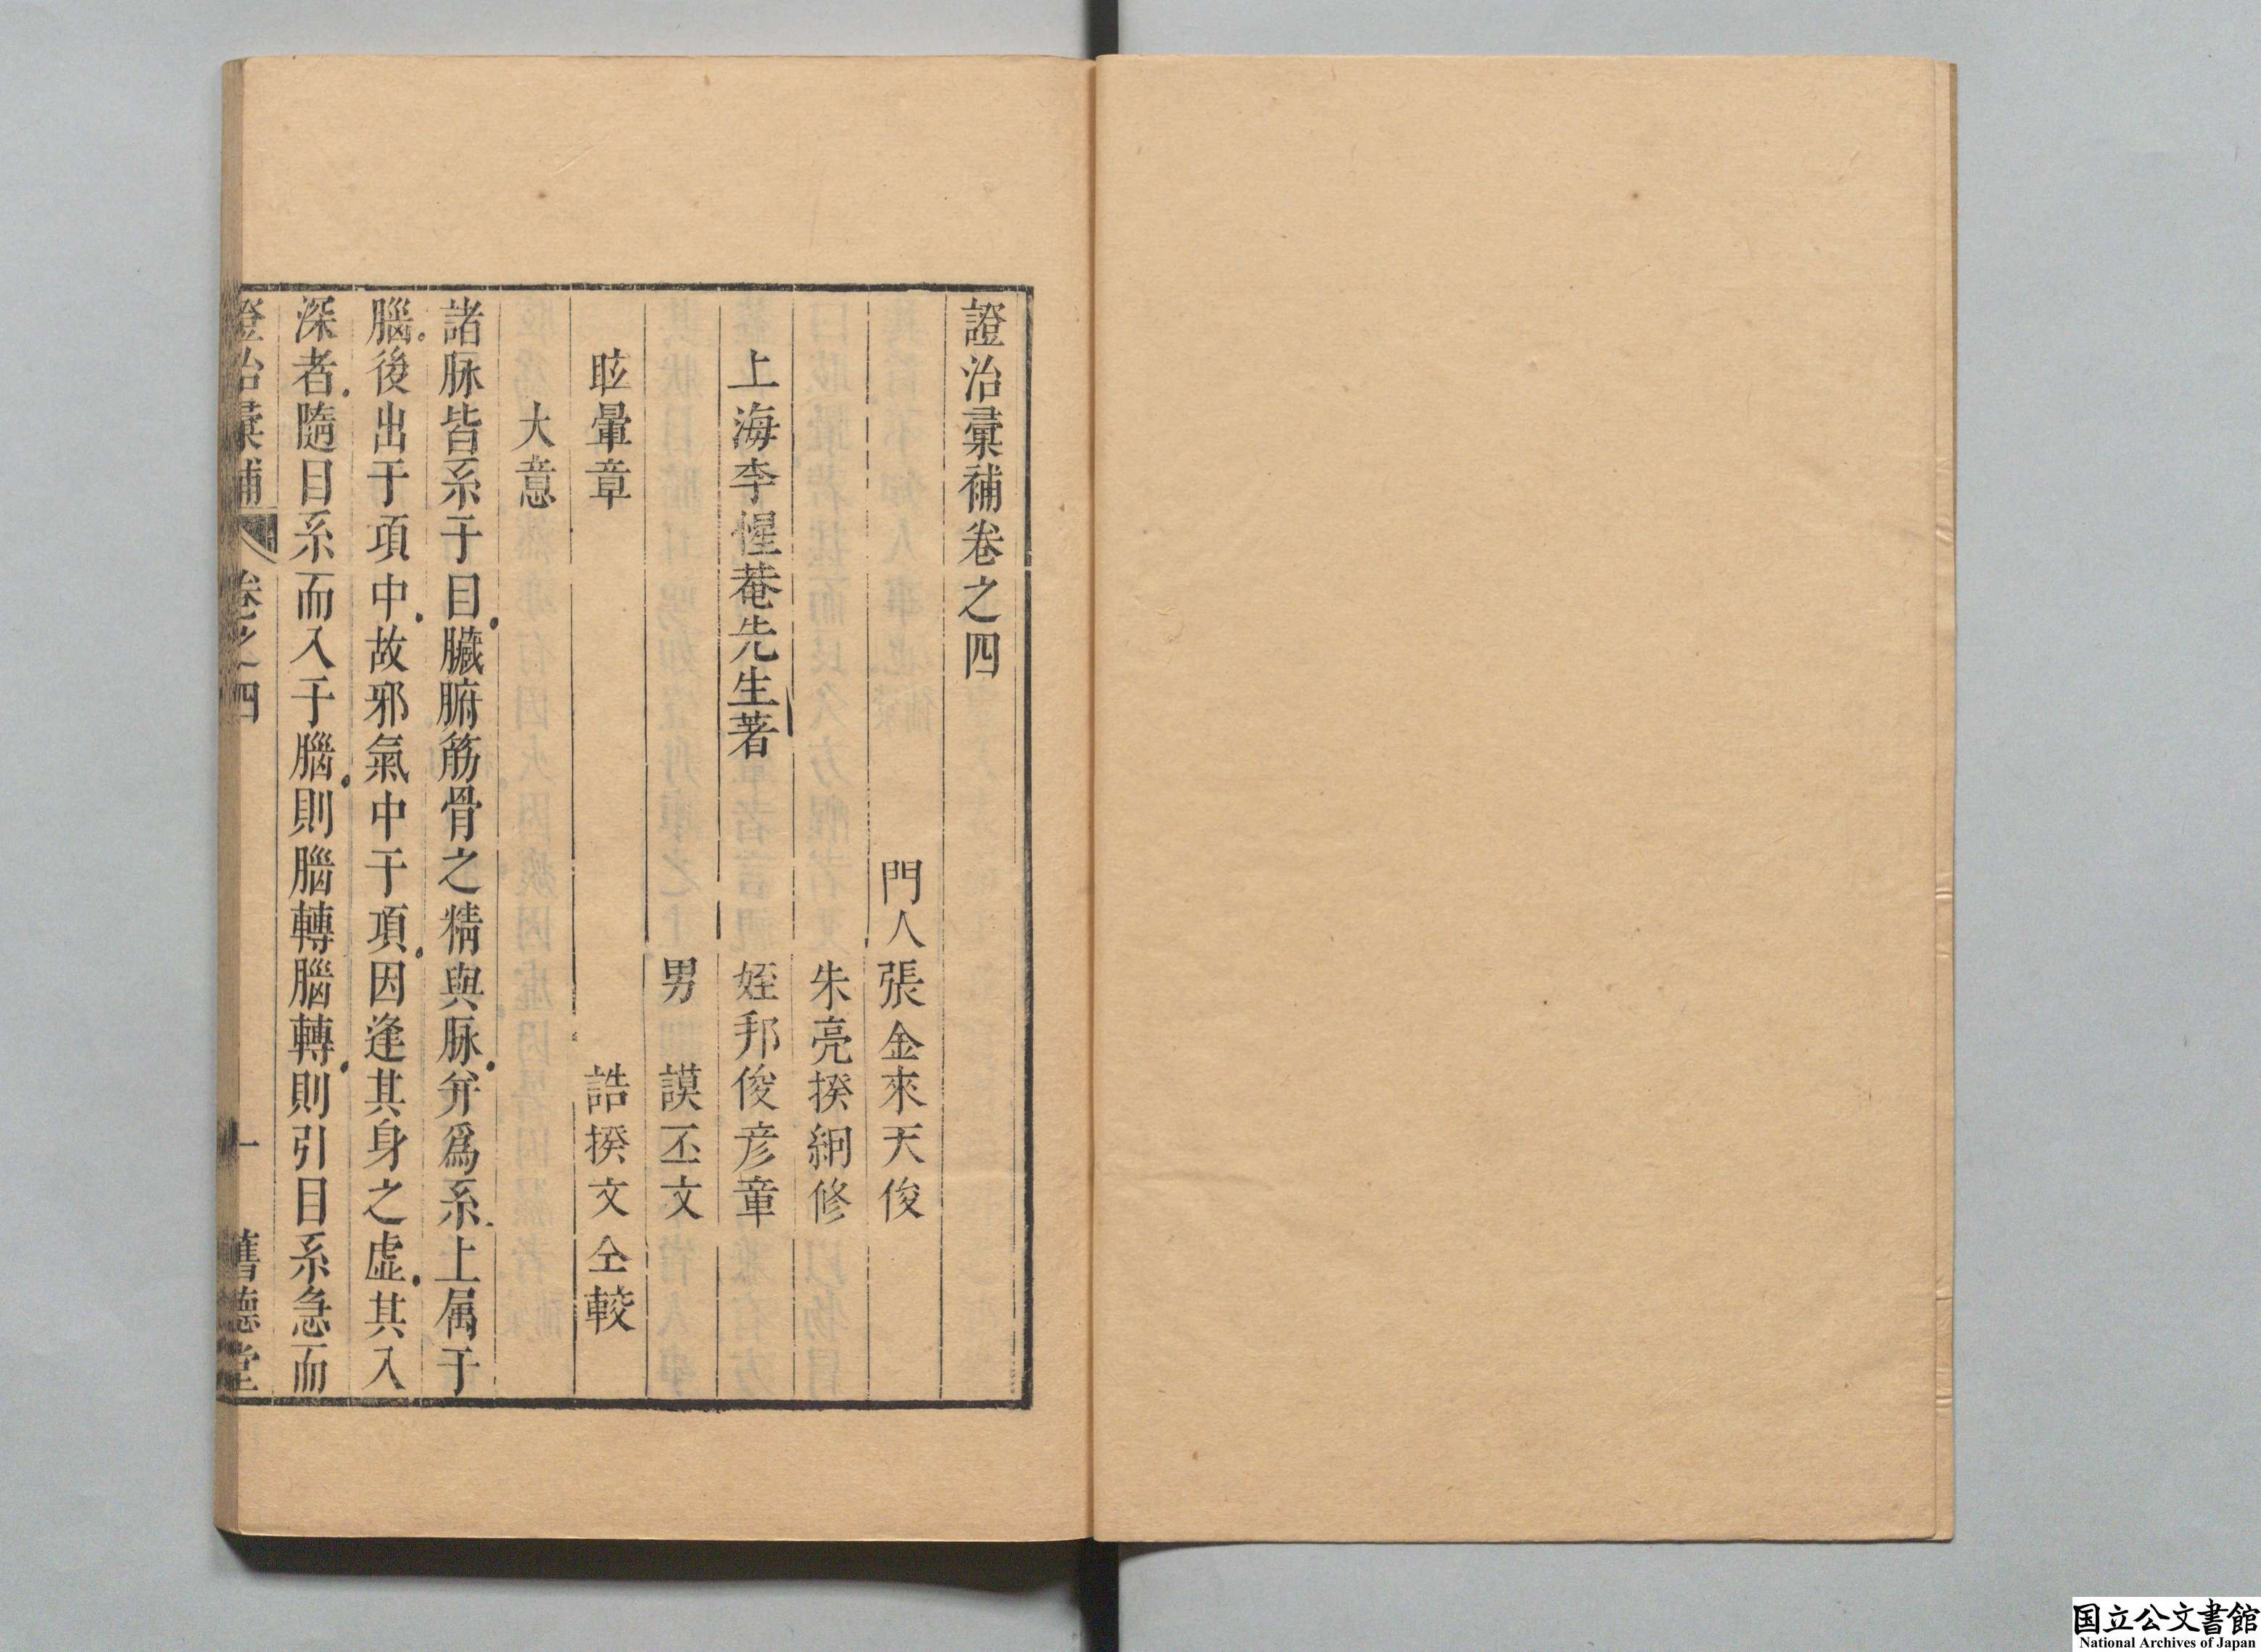 證治彙補卷之四
門人張金來天俊
朱亮揆綱修
上海李惺菴先生著
姪邦俊彦章
男謨丕文
眩暈章
誥揆文仝較
大意
諸脉皆系于目臟腑筋骨之精與脉弁爲系上属于
腦後出于項中故邪氣中于項因逢其身之虛其入
深者隨目系而入于腦則腦轉腦轉則引目系急而
證治彙補 卷之四 一 舊德堂
国立公文書館
National Archives of Japan